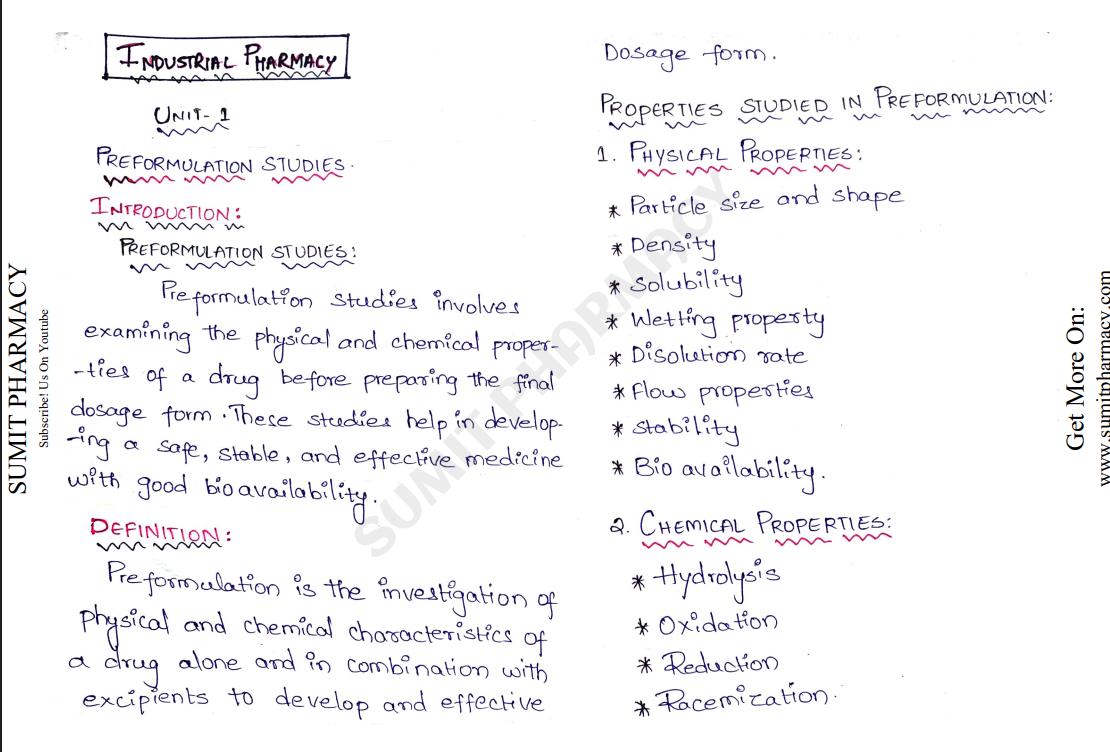 INDUSTRIAL PHARMACY
UNIT-1
PREFORMULATION STUDIES.
INTRODUCTION:
PREFORMULATION STUDIES:
Preformulation studies involves
examining the physical and chemical proper-
-ties of a drug before preparing the final
dosage form. These studies help in develop-
-ing a safe, stable, and effective medicine
with good bioavailability.
DEFINITION:
Preformulation is the investigation of
physical and chemical characteristics of
a drug alone and in combination with
excipients to develop and effective
Dosage form.
PROPERTIES STUDIED IN PREFORMULATION:
1. PHYSICAL PROPERTIES:
* Particle size and shape
* Density
* Solubility
* Wetting property
* Disolution rate
* Flow properties
* Stability
* Bio availability.
2. CHEMICAL PROPERTIES:
* Hydrolysis
* Oxidation
* Reduction
* Racemization.
SUMIT PHARMACY
Subscribe! Us On Youtube
SUMIT PHARMACY
Get More On:
www.sumitpharmacy.com